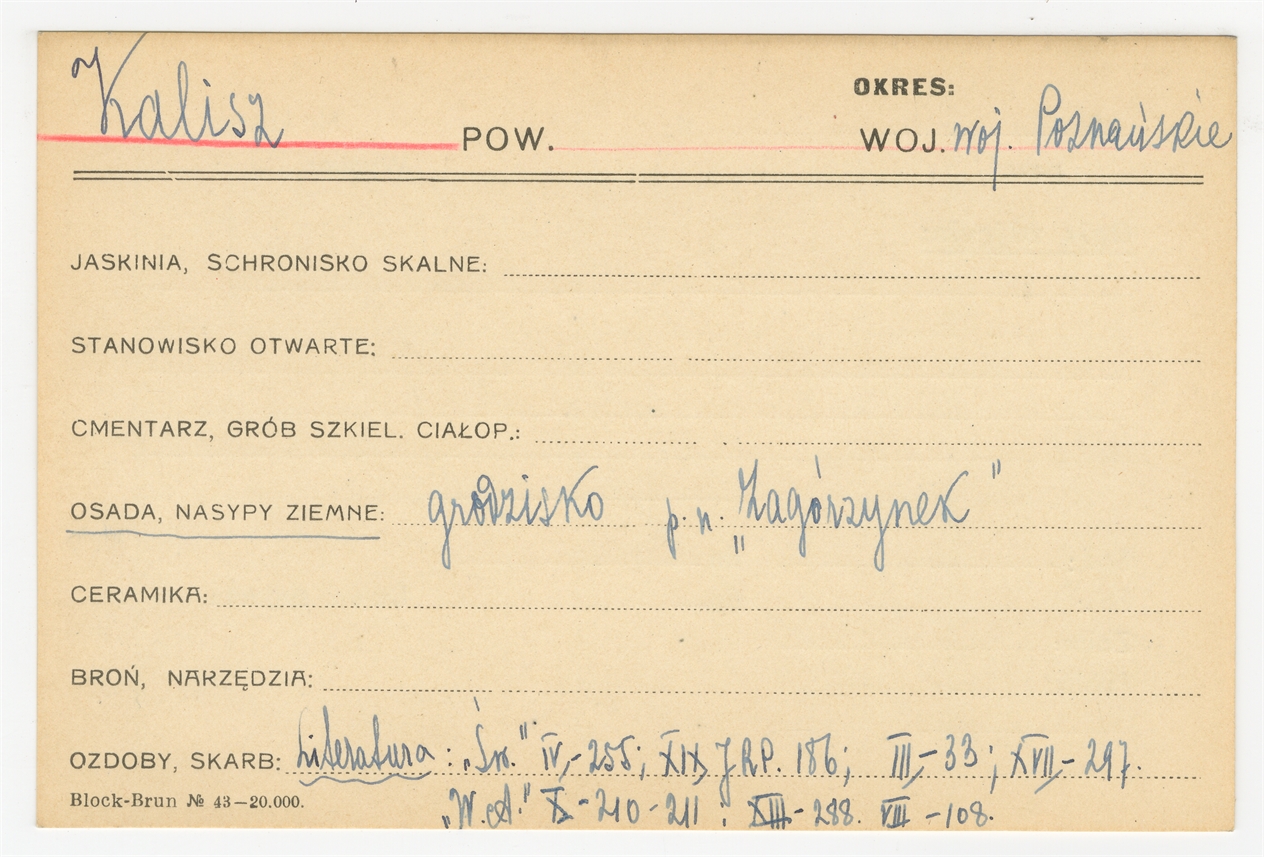 OKRES:
Kalisz POW. WOJ. woj. Poznańskie
JASKINIA, SCHRONISKO SKALNE:
STANOWISKO OTWARTE:
CMENTARZ, GRÓB SZKIEL. CIAŁOP.:
OSADA, NASYPY ZIEMNE: grodzisko p. n. „Zagórzynek"
CERAMIKA:
BROŃ, NARZĘDZIA:
OZDOBY, SKARB: Literatura: „Św." IV,-255; XIX, J RP. 186; III,-33; XVII,-297.
Block-Brun № 43—20.000.
„W.A." X-210-211; XIII-288. VIII -108.